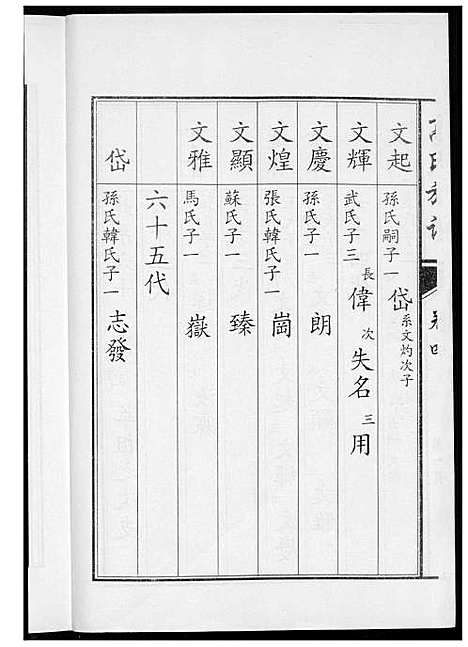 文起 孫氏嗣子一 岱 系文灼次子
文輝 武氏子三 長 偉 次 失名 三 用
文慶 孫氏子一 朗
文煌 張氏韓氏子一 崗
文顯 蘇氏子一 臻
文雅 馬氏子一 嶽
六十五代
岱 孫氏韓氏子一 志發